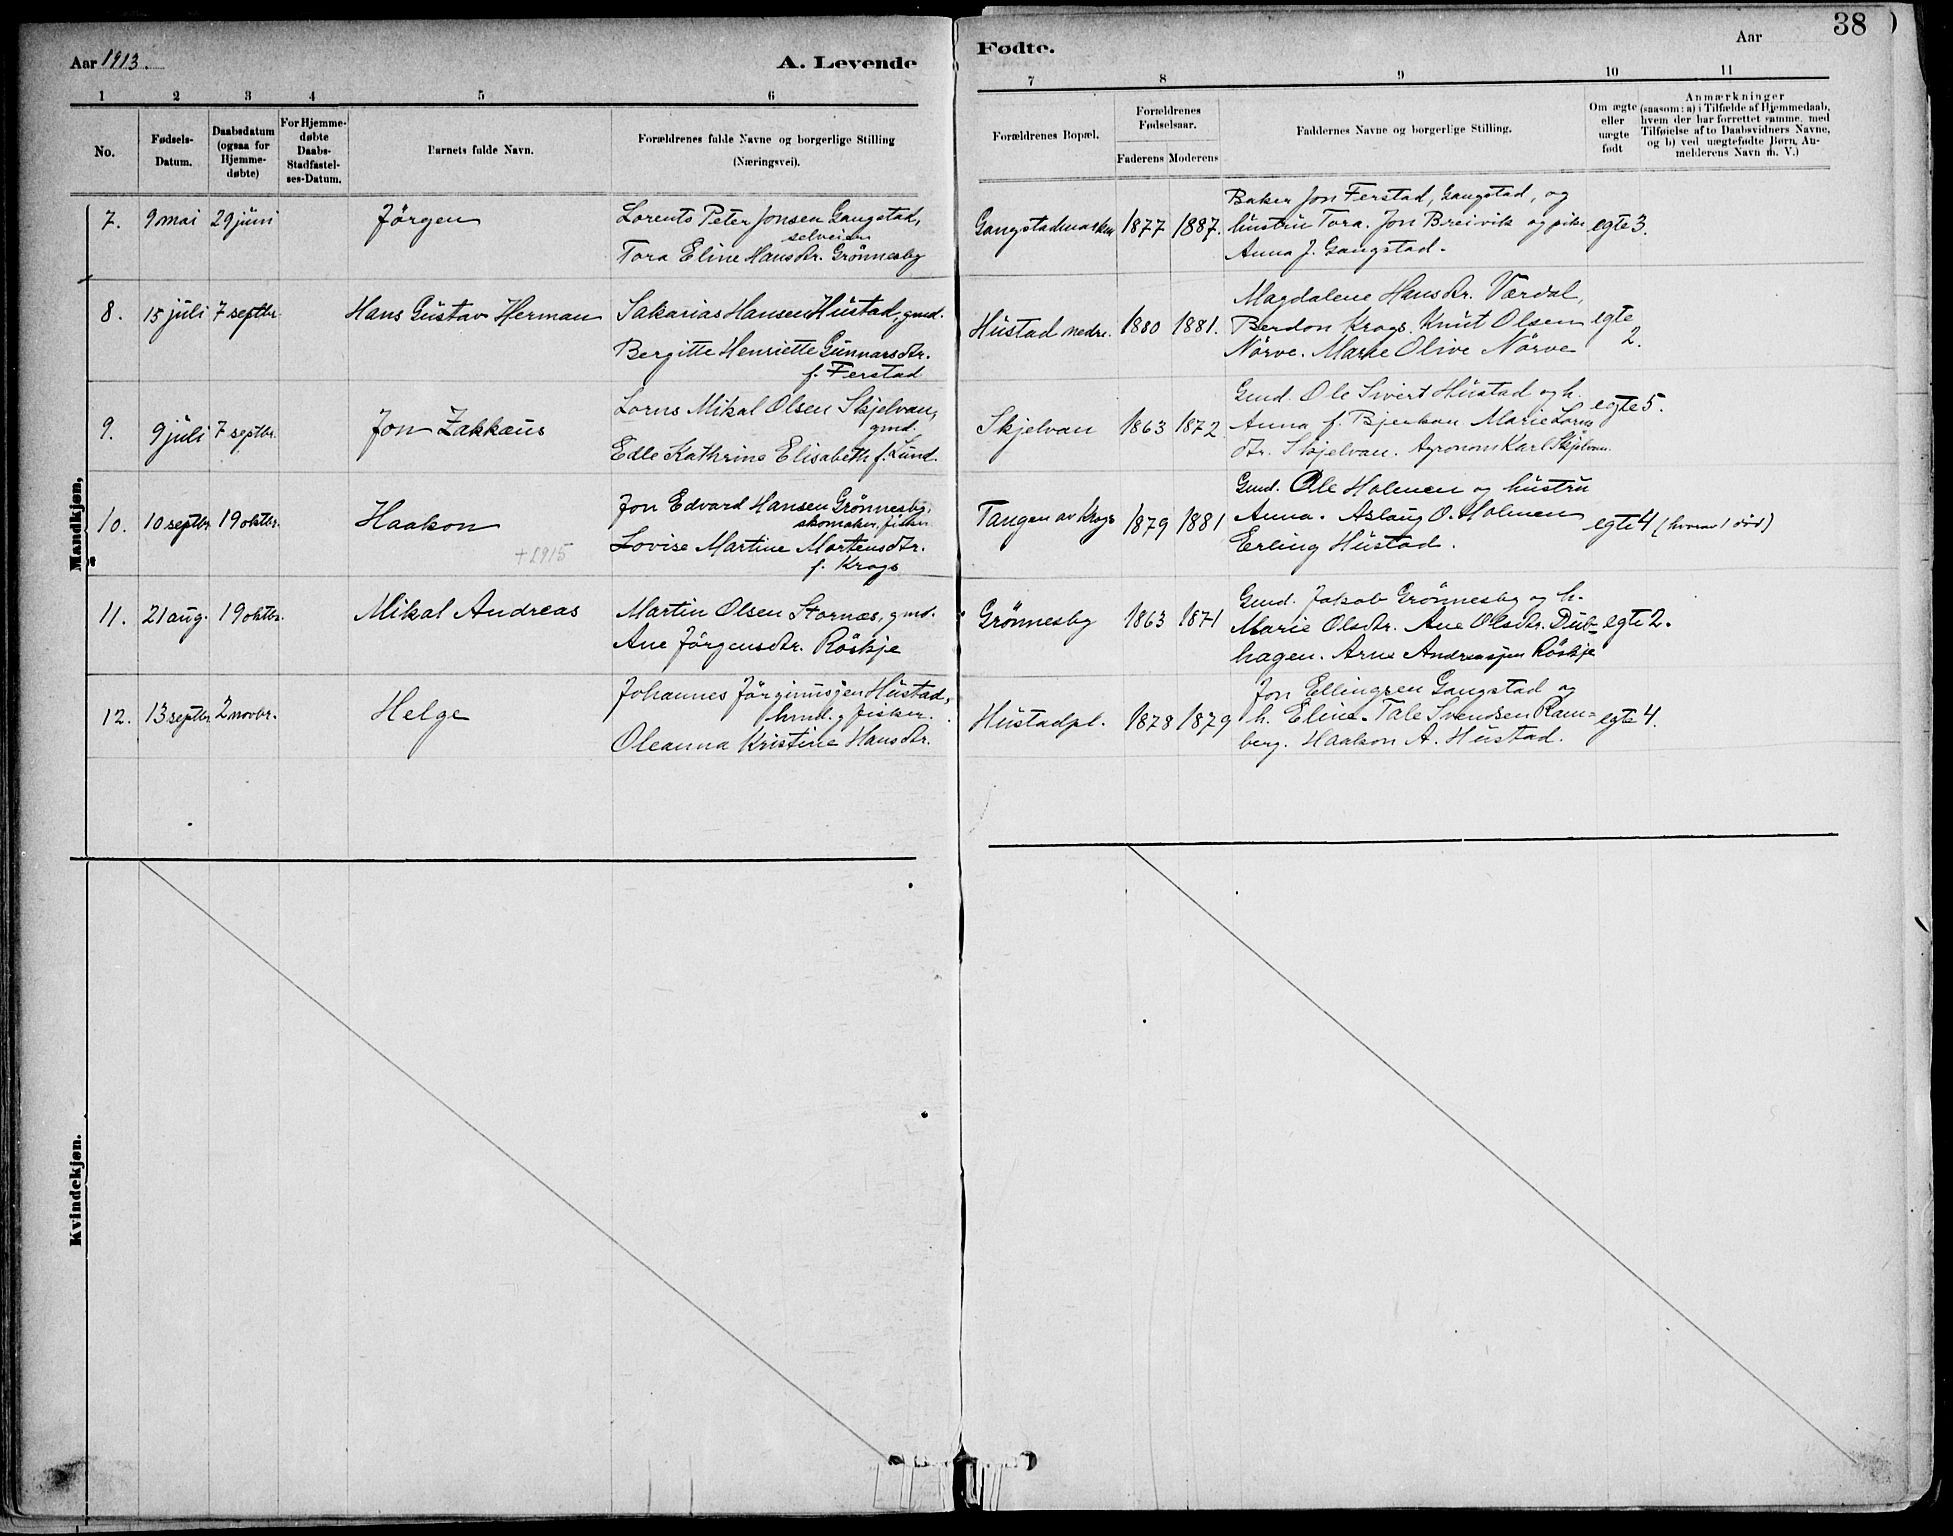 38
Aar 1913.
A. Levende
Fødte.
Aar
1 2 3 4 5 6
7 8 9 10 11
No.
Fødsels-
Datum.
Daabsdatum
(ogsaa for
Hjemme-
døbte)
For Hjemme-
døbte
Daabs-
Stadfæstel-
ses-Datum.
Barnets fulde Navn.
Forældrenes fulde Navne og borgerlige Stilling
(Næringsvei).
Forældrenes Bopæl.
Forældrenes
Fødselsaar.
Faderens Moderens
Faddernes Navne og borgerlige Stilling.
Om ægte
eller
uægte
født
Anmærkninger
(saasom: a) i Tilfælde af Hjemmedaab,
hvem der har forrettet samme, med
Tilføielse af to Daabsvidners Navne,
og b) ved uægtefødte Børn, An-
melderens Navn m. V.)
Mandkjøn,
7. 9 mai 29 juni Jörgen
Lorents Peter Jonsen Gangstad,
selveier
Tora Eline Hansdtr. Grönnesby
Gangstadmarken 1877 1887.
Baker Jon Ferstad, Gangstad, og
hustru Tora. Jon Breivik og pike
Anna J. Gangstad.
egte 3.
8. 15 juli 7 septbr. Hans Gustav Herman
Sakarias Hansen Hustad, gmd.
Bergitte Henriette Gunnarsdtr.
f. Ferstad
Hustad nedre. 1880 1881.
Magdalene Hansdtr. Værdal,
Berdon Krogs. Knut Olsen
Nörve. Marie Olive Nörve
egte
2.
9. 9 juli 7 septbr. Jon Zakkæus
Lorns Mikal Olsen Skjelvan,
gmd.
Edle Kathrine Elisabeth f. Lund.
Skjelvan 1863 1872.
Gmd. Ole Sivert Hustad og h.
Anna f. Bjerkan Marie Lorns
dtr. Skjelvan. Agronom Karl Skjelvan.
egte 5.
10. 10 septbr 19 oktbr. Haakon
+1915
Jon Edvard Hansen Grönnesby,
skomaker, fisker
Lovise Martine Martensdtr.
f. Krogs
Tangen av Krogs 1879 1881
Gmd. Ole Holmen og hustru
Anna. Aslaug O. Holmen
Erling Hustad.
egte 4 (hvorav 1 död)
11. 21 aug. 19 oktbr. Mikal Andreas
Martin Olsen Stornæs, gmd.
Ane Jörgensdtr. Röskje
Grönnesby 1863 1871
Gmd. Jakob Grönnesby og h.
Marie Olsdtr. Ane Olsdtr. Dub-
hagen. Arne Andreassen Röskje
egte 2.
12. 13 septbr 2 novbr. Helge
Johannes Jörginussen Hustad,
hmd. g fisker.
Oleanna Kristine Hansdtr.
Hustadpl. 1878 1879
Jon Ellingsen Gangstad og
h. Eline. Tale Svendsen Ram-
berg. Haakon A. Hustad.
egte 4.
Kvindekjøn.